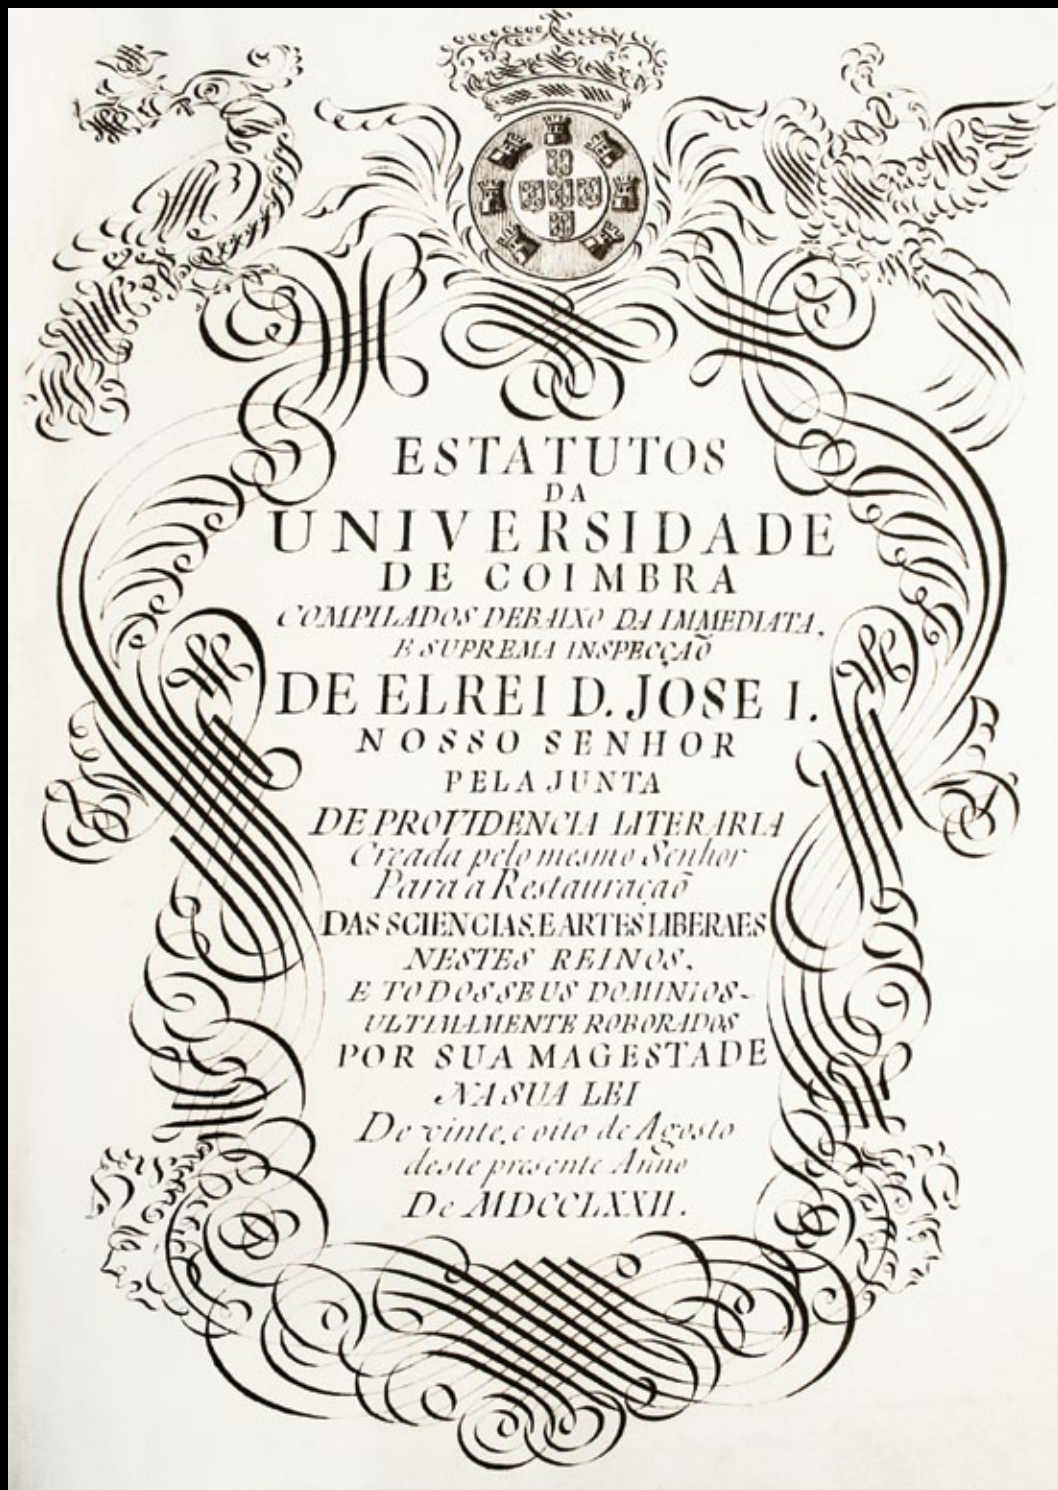 ESTATUTOS
DA
UNIVERSIDADE
DE COIMBRA
COMPILADOS DEBAIXO DA IMMEDIATA,
E SUPREMA INSPECÇAÕ
DE ELREI D. JOSE I.
NOSSO SENHOR
PELA JUNTA
DE PROVIDENCIA LITERARIA
Creada pelo mesmo Senhor
Para a Restauraçaõ
DAS SCIENCIAS, E ARTES LIBERAES
NESTES REINOS,
E TODOS SEUS DOMINIOS-
ULTIMAMENTE ROBORADOS
POR SUA MAGESTADE
NA SUA LEI
De vinte, e oito de Agosto
deste presente Anno
De MDCCLXXII.